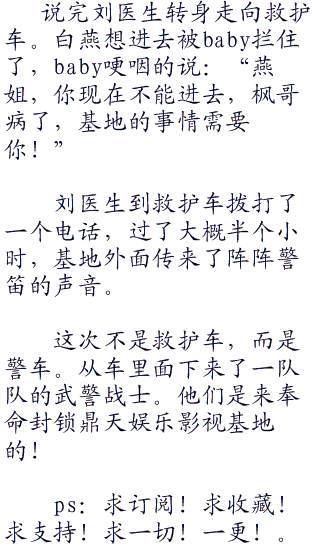 说完刘医生转身走向救护
车。白燕想进去被baby拦住
了，baby哽咽的说：“燕
姐，你现在不能进去，枫哥
病了，基地的事情需要
你！”
刘医生到救护车拨打了
一个电话，过了大概半个小
时，基地外面传来了阵阵警
笛的声音。
这次不是救护车，而是
警车。从车里面下来了一队
队的武警战士。他们是来奉
命封锁鼎天娱乐影视基地
的！
ps：求订阅！求收藏！
求支持！求一切！一更！。